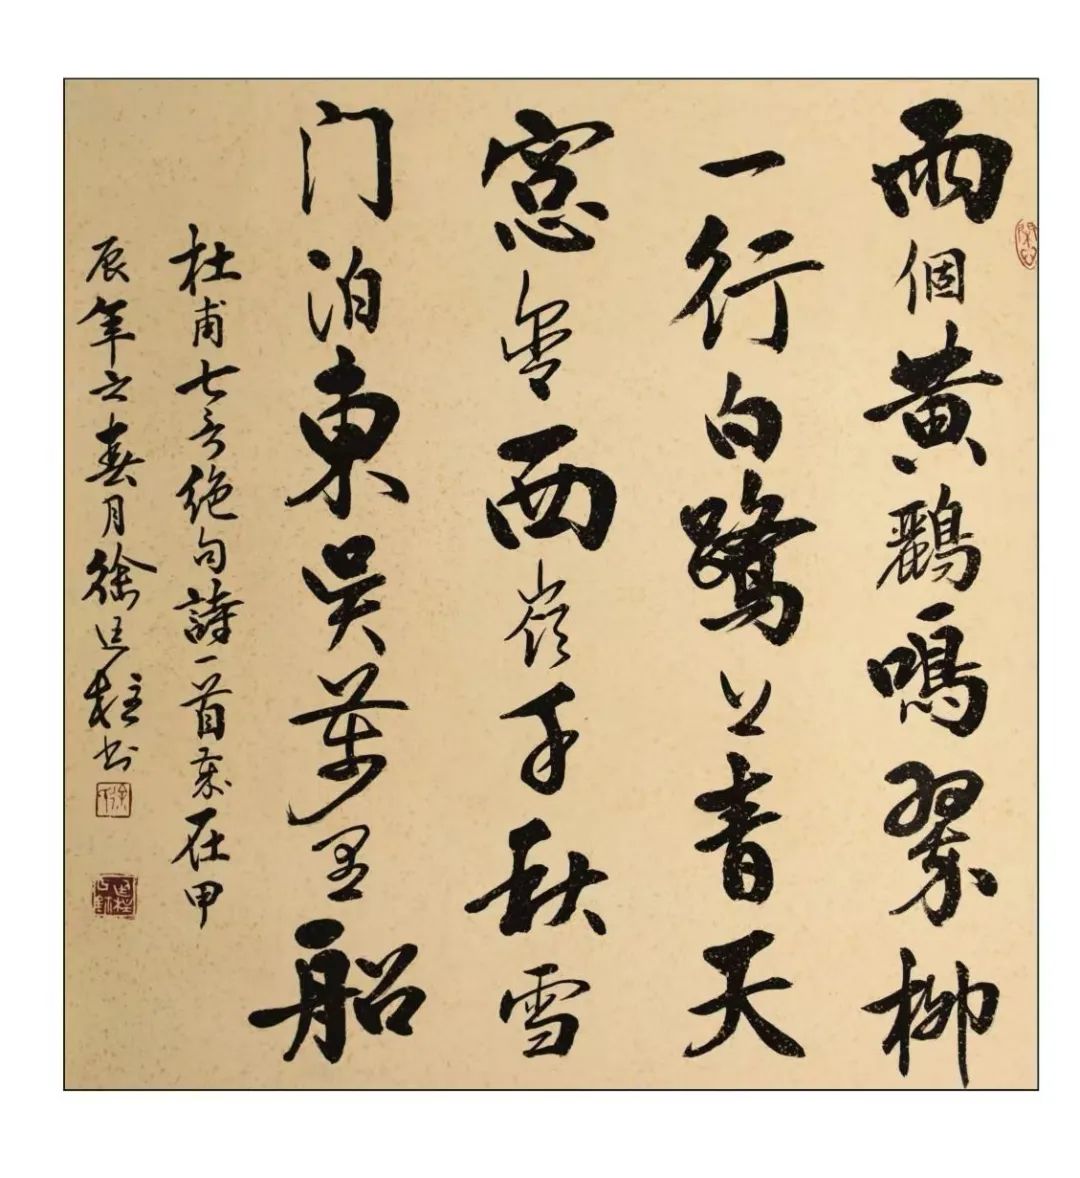 兩個黄鸝鳴翠柳
一行白鷺上青天
窓含西嶺千秋雪
门泊東吴萬里船
杜甫七言绝句詩一首歲在甲
辰年之春月徐柱书